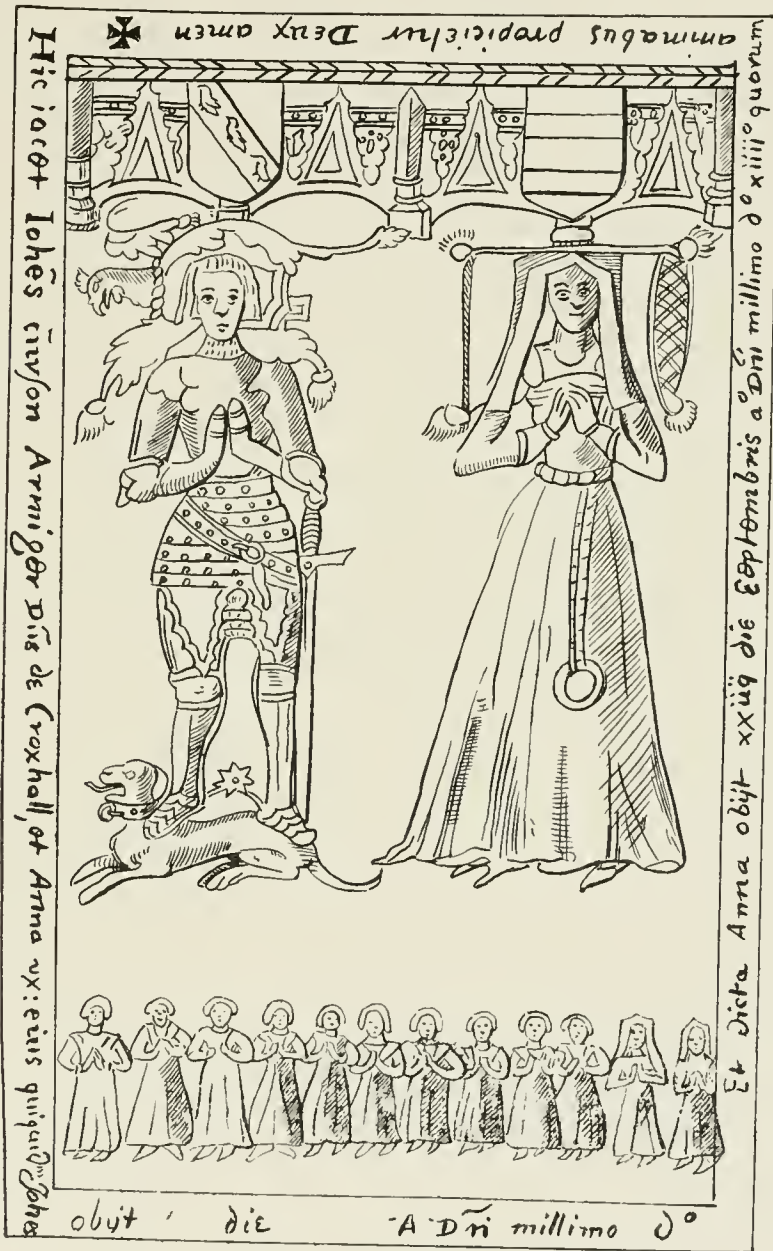 Hic iacet Iohēs Curson Armiger Dn̄s de Croxhall, et Anna ux: eius quiquidm Johes
obijt die A Dn̄i millimo d°
Et dicta Anna obijt xxiiij die Septembris a° Dn̄i millimo d° xiiii° quorum
animabus propicietur Deux amen ✠